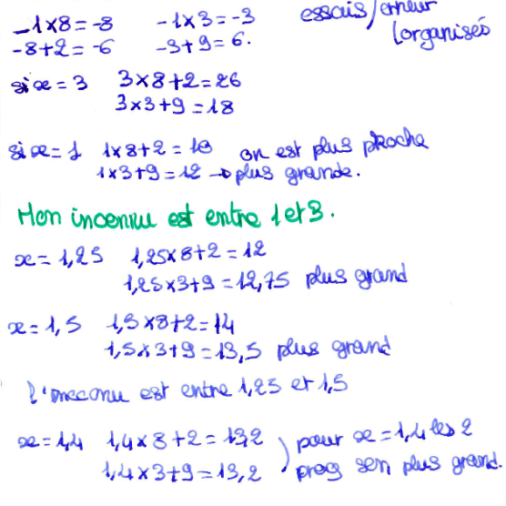 -1x8=-8 -1x3=-3 essais/erreur
-8+2=-6 -3+9=6. (organisés
si x=3 3x8+2=26
3x3+9=18
si x=1 1x8+2=10 on est plus proche
1x3+9=12 → plus grande.
Mon inconnu est entre 1 et 3.
x=1,25 1,25x8+2=12
1,25x3+9=12,75 plus grand
x=1,5 1,5x8+2=14
1,5x3+9=13,5 plus grand
l'inconnu est entre 1,25 et 1,5
x=1,4 1,4x8+2=13,2 ) pour x=1,4 les 2
1,4x3+9=13,2 prog plus grand.